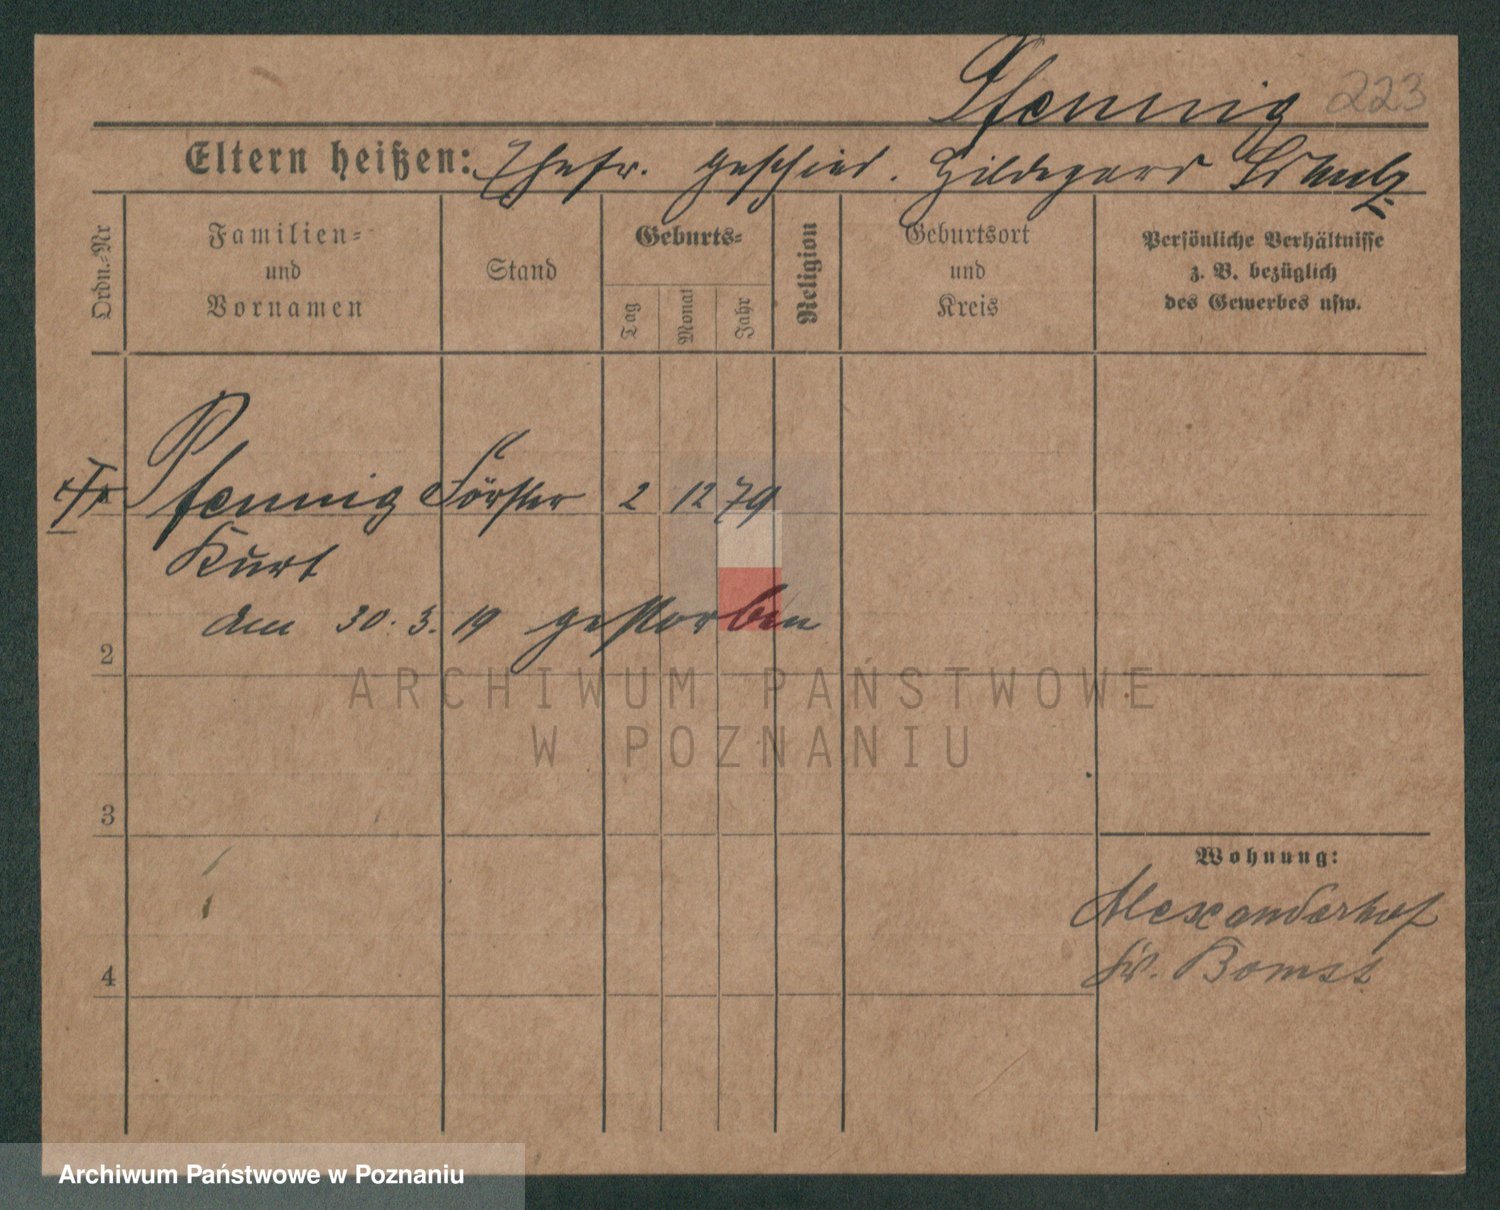 Pfennig 223
Eltern heißen: Ehefr. geschied. Hildegard Schulz
Ordn.-Nr
Familien-
und
Vornamen
Stand
Geburts-
Tag
Monat
Jahr
Religion
Geburtsort
und
Kreis
Persönliche Verhältnisse
z. B. bezüglich
des Gewerbes usw.
Pfennig Förster 2 12 79
Kurt
am 30. 3. 19 gestorben
2
ARCHIWUM PAŃSTWOWE
W POZNANIU
3
Wohnung:
Alexanderhof
Kr. Bomst
4
Archiwum Państwowe w Poznaniu